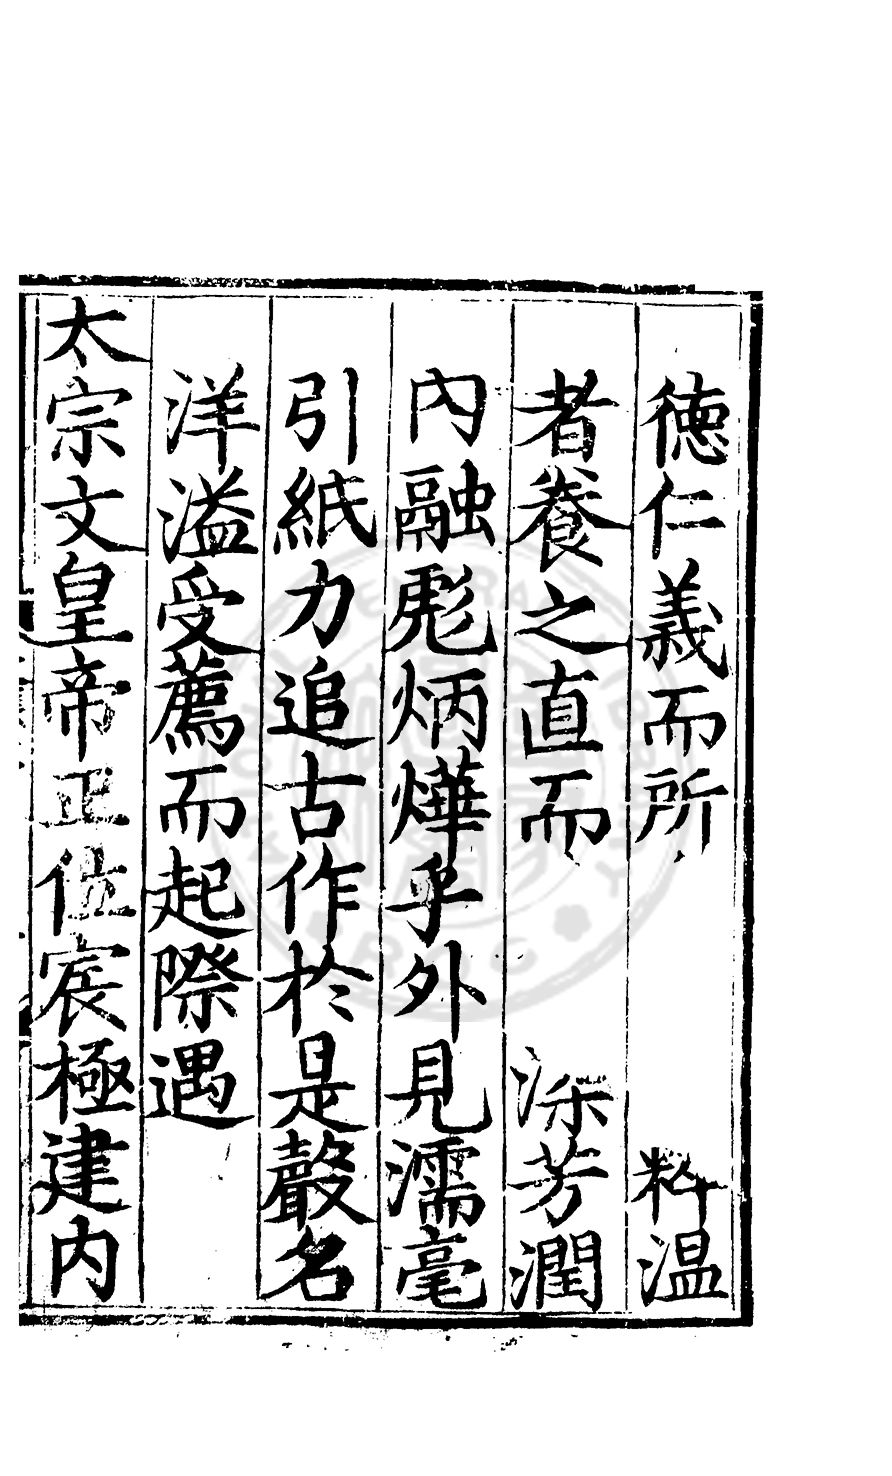 德仁義而所粹温
者養之直而深芳潤
內融彪炳燁乎外見濡毫
引紙力追古作於是聲名
洋溢受薦而起際遇
太宗文皇帝正位宸極建內